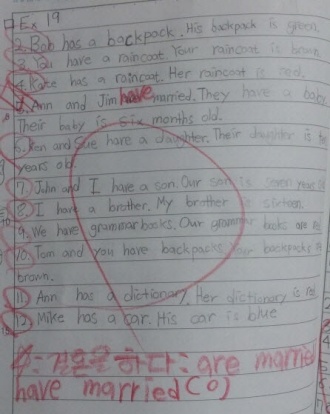 Ex 19
2. Bob has a backpack. His backpack is green.
3. You have a raincoat. Your raincoat is brown.
4. Kate has a raincoat. Her raincoat is red.
5. Ann and Jim have married. They have a baby.
Their baby is six months old.
6. Ken and Sue have a daughter. Their daughter is
years old.
7. John and I have a son. Our son is seven years
8. I have a brother. My brother is sixteen.
9. We have grammar books. Our grammar books are red
10. Tom and you have backpacks. Your backpacks
brown.
11. Ann has a dictionary. Her dictionary is red
12. Mike has a car. His car is blue
결혼을 하다 : are married
have married (o)